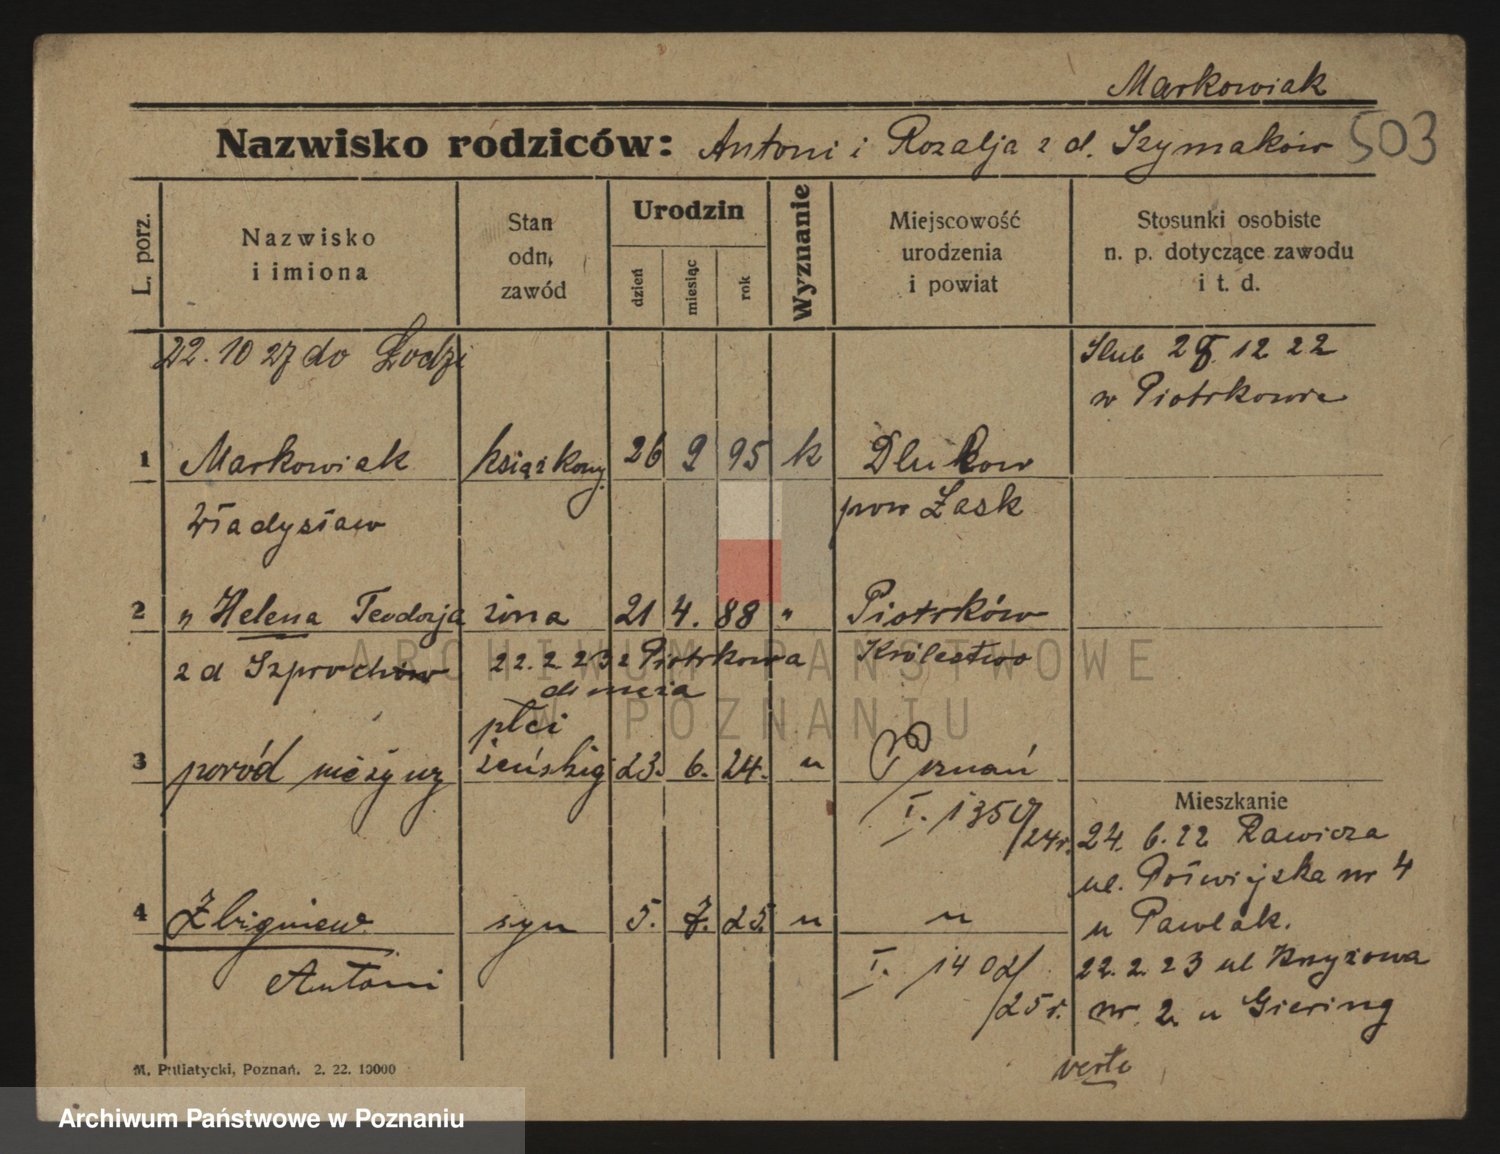 Markowiak
Nazwisko rodziców: Antoni i Rozalja z d. Szymaków 503
L. porz.
Nazwisko
i imiona
Stan
odn,
zawód
Urodzin
dzień
miesiąc
rok
Wyznanie
Miejscowość
urodzenia
i powiat
Stosunki osobiste
n. p. dotyczące zawodu
i t. d.
22. 10 27 do Łodzi
Ślub 28. 12 22
w Piotrkowie
1 Markowiak książkowy 26 9 95 k Dlutow
Władysław pow Łask
2 " Helena Teodozja żona 21 4. 88 " Piotrków
z d 22. 2. 23 z Piotrkowa Królestwo
do męża
płci
3 poród nieżywy żeńskiej 23. 6. 24. " Poznań
I. 1350/24r.
Mieszkanie
24. 6. 22 Rawicza
ul. nr 4
u Pawlak.
4 Zbigniew syn 5. 7. 25. " "
Antoni I. 1402/25 r.
22. 2. 23 ul Krzyżowa
nr. 2 u Giering
verte
M. Puliatycki, Poznań. 2. 22. 10000
ARCHIWUM PAŃSTWOWE
W POZNANIU
Archiwum Państwowe w Poznaniu